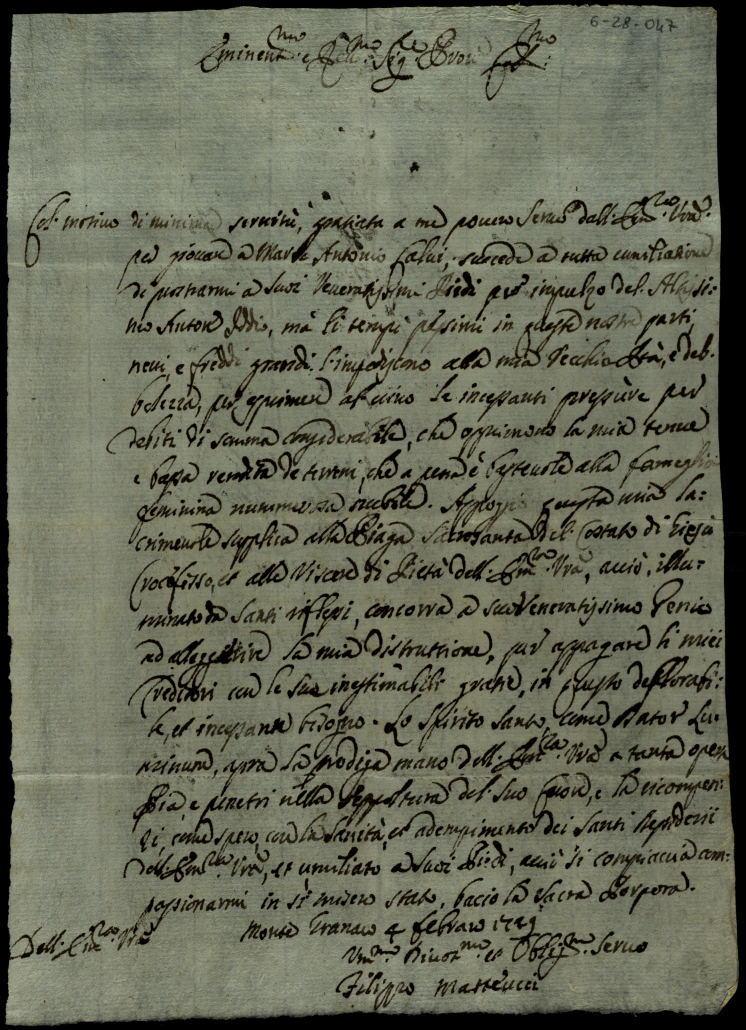 6-28-047
Eminent.mo e Rev.mo Sig.re Pron
Col motivo di minima servitù, graziata a me povero Servo dall. Em.za Vra.
per giovare a Marc Antonio Calvi, succede a tutta umiliazione
di postrarmi a Suoi Veneratissimi Piedi per impulzo del Altissi:
mo Autore Iddio, mà li tempi pessimi in queste nostre parti
nevi, e freddi grandi l'impediscono alla mia Vecchia Età, e deb:
bolezza, per esprimere al vivo le incessanti pressure per
debiti di somma considerabile, che opprimono la mia tenue
e bassa rendita de terreni, che a pena è bastevole alla fameglia
feminina nummerosa nubile. Appoggio questa mia la:
crimevole supplica alla Piaga Sacrosanta del Costato di Giesù
Crocefisso, et alle Viscere di Pietà dell. Em.za Vra, acciò, illu:
minato da Santi riflessi, concorra a suo Veneratissimo Genio
ad alleggerire la mia distruttione, per appagare li miei
Creditori con le sue inestimabili gratie, in questo deplorabi:
le, et incessante bisogno. Lo Spirito Santo, come Dator Lu:
minum, apra la prodiga mano dell. Em.za Vra a tanta opera
Pia, e penetri nella del Suo Cuore, e la ricompen:
si, come spero, con la Sanità, et adempimento dei Santi
dell. Em.za Vra, et umiliato a Suoi Piedi, acciò si compiaccia com:
passionarmi in sì misero stato, bacio la Sacra Porpora.
Monte Granaro 4 febraro 1729
Dell. Em.za Vra
Um.mo Divot.mo et Oblig.mo Servo
Filippo Matteucci